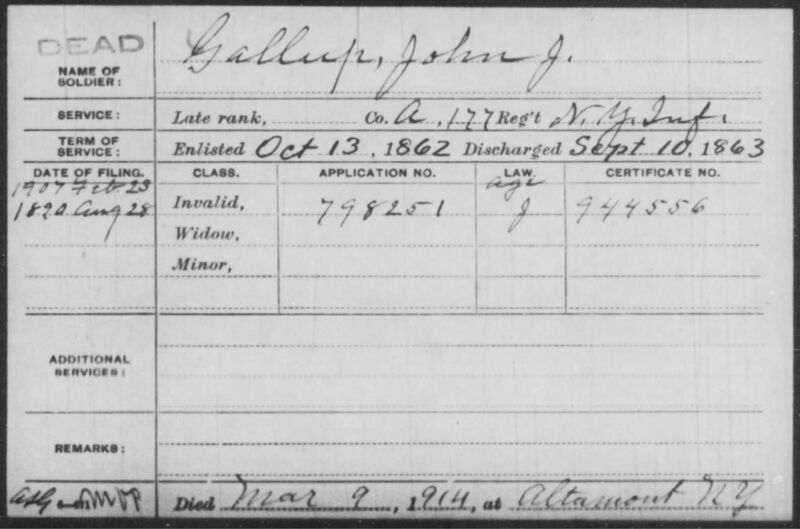 DEAD
Gallup, John J.
NAME OF
SOLDIER:
SERVICE: Late rank, Co. A, 177 Reg't N.Y. Inf.
TERM OF
SERVICE: Enlisted Oct 13, 1862 Discharged Sept 10, 1863
DATE OF FILING. CLASS. APPLICATION NO. LAW. CERTIFICATE NO.
1907 Feb 23 age
1890 Aug 28 Invalid, 798251 J 944556
Widow,
Minor,
ADDITIONAL
SERVICES:
REMARKS:
Died Mar 9, 1914, at Altamont NY